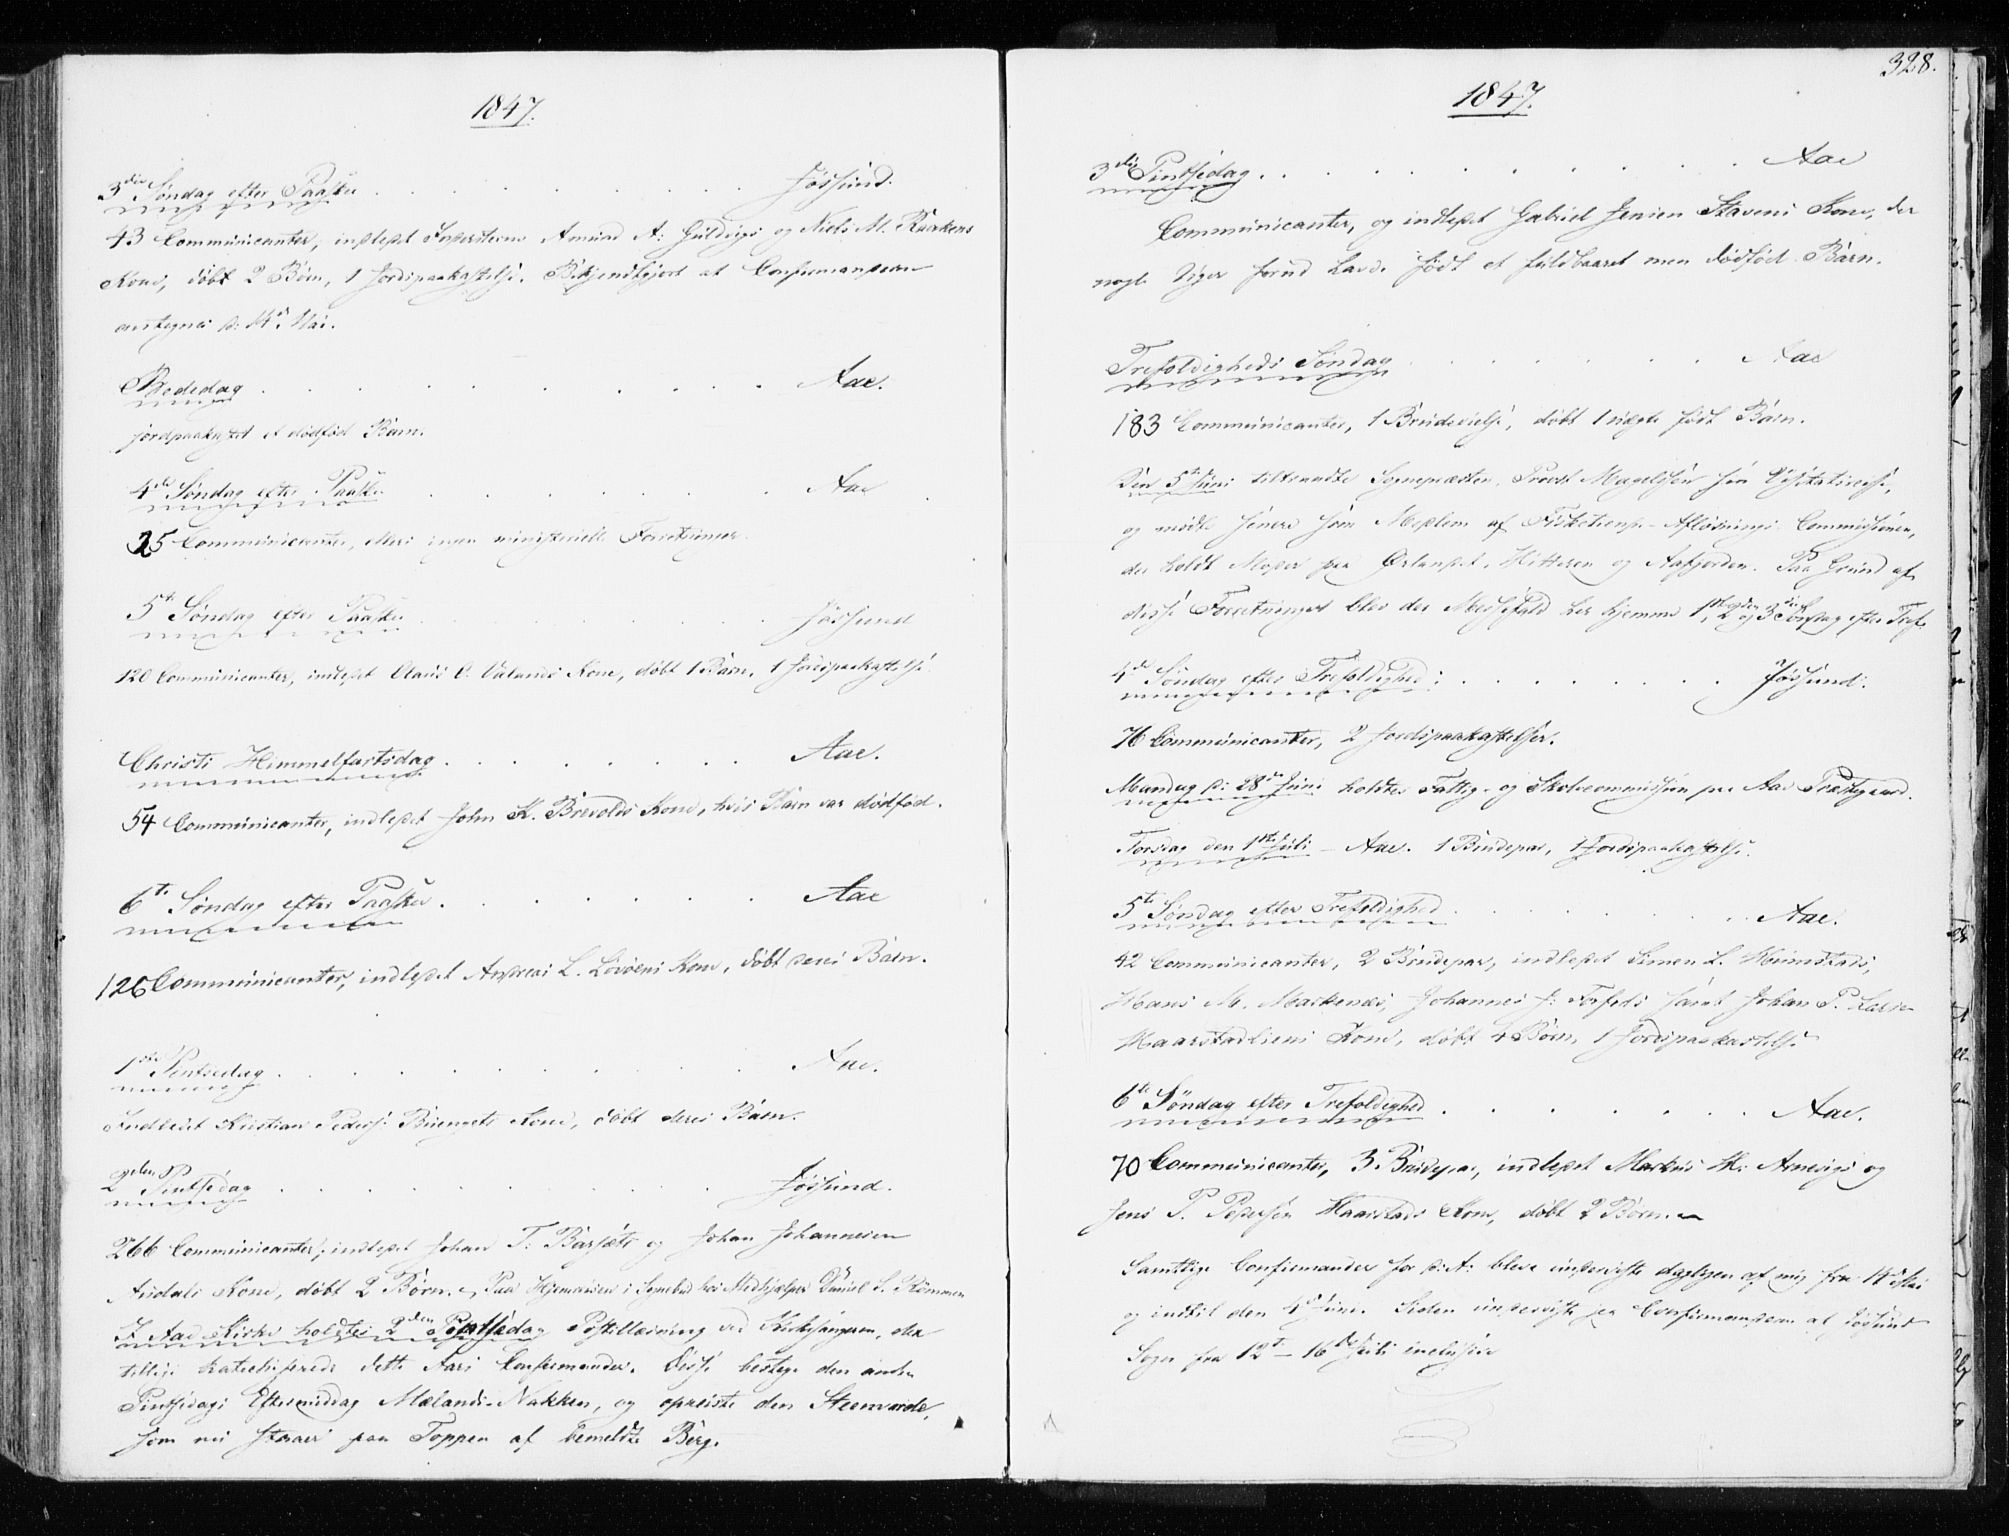 1847.
3die Søndag efter Paaske . . . . . . . . Jøssund.
43 Communicanter, indledet Amund A: Guldvigs og Niels M. Kone, døbt 2 Børn, 1 Jordspaakastelse. Bekjendtgjort at
antegnes d: 14de Mai.
Bededag . . . . . . . . . . Aae.
jordpaakastet et dødfød Barn.
4de Søndag efter Paaske . . . . . . . . Aae
25 Communicanter, ellers ingen ministerielle Forretninger.
5te Søndag efter Paaske . . . . . . . . Jøssund
120 Communicanter, indledet Claus O. Valands Kone, døbt 1 Barn, 1 Jordspaakastelse
Christi Himmelfartsdag . . . . . . . Aae.
54 Communicanter, indledet John K. Brevolds Kone, hvis Barn var dødfød.
6te Søndag efter Paaske . . . . . . . Aae
126 Communicanter, indledet Andreas L. Kone, døbt deres Barn.
1ste Pintsedag . . . . . . . . . . Aae.
Indledet Kristian Peders: Kone, døbt deres Barn.
2den Pintsedag . . . . . . . . . Jøssund.
266 Communicanter, indledet Johan T: Barsæts og Johan Johannesen
Kone, døbt 2 Børn. Paa Hjemreisen i Sognebud hos Medhjælper Daniel S.
I Aae Kirke holdtes 2den Pintsedag Postillæsning ved Kirkesangeren, der
tillige katechiserede dette Aars Confirmander. Disse besteg den anden
Pintsedags Eftermiddag Mælands-Nakken, og opreiste den Steenvarde,
som nu staaer paa Toppen af bemeldte Berg.
328.
1847.
3die Pintsedag . . . . . . . . . Aae
Communicanter, og indledet Gabriel Jensen Stavens Kone, der
nogle Uger forud havde født et fuldbaaret men dødfød Barn.
Trefoldigheds Søndag . . . . . . . Aae
183 Communicanter, 1 Brudevielse, døbt 1 uægte født Barn.
Den 5te Juni tiltraadte Sognepræsten, Provst Magelssen sin Visitatsreise,
og mødte senere som Medlem af Afløsnings-Commissionen,
der holdt Møder paa Ørlandet, Hitteren og Aafjorden. Paa Grund af
disse Forretninger blev der Messefald her hjemme 1ste, 2den og 3die Søndag efter Tref.
4de Søndag efter Trefoldighed: . . . . . . . Jøssund.
76 Communicanter, 2 Jordspaakastelser.
Mandag d: 28de Juni holdtes Fattig- og Skolecommission paa Aae Præstegaard.
Torsdag den 1ste Juli – Aae. 1 Brudepar, 1 Jordspaakastelse.
5te Søndag efter Trefoldighed . . . . . . . Aae.
42 Communicanter, 2 Brudepar, indledet Simen L. Heimstads,
Hans M. Markenæs, Johannes J: samt Johan P.
Haarstadliens Kone, døbt 4 Børn, 1 Jordspaakastelse
6te Søndag efter Trefoldighed . . . . . . . Aae.
70 Communicanter, 3 Brudepar, indledet Markus H: Arnevigs og
Jens P. Pedersen Haarstads Kone, døbt 2 Børn.
Samtlige Confirmander for d: A: bleve underviste daglegen af mig fra 14de Mai
og indtil den 4de Juni. Siden underviste jeg Confirmanderne af Jøssund
Sogn fra 12te – 16de Juli inclusive